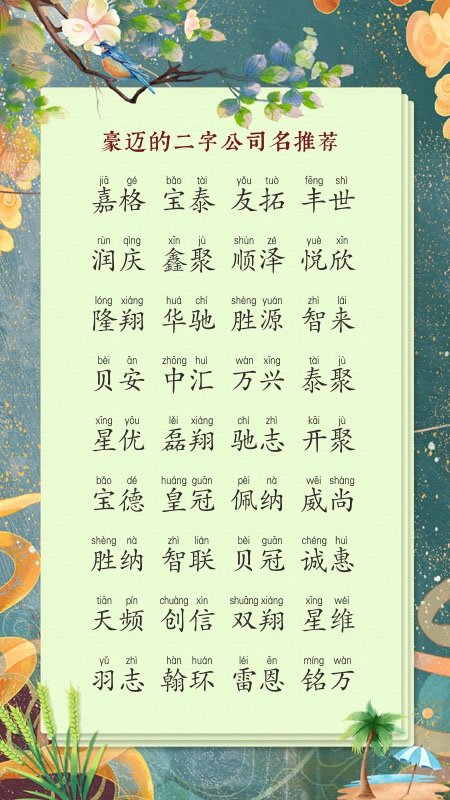 豪迈的二字公司名推荐
jiā gé bǎo tài yǒu tuò fēng shì
嘉格 宝泰 友拓 丰世
rùn qìng xīn jù shùn zé yuè xīn
润庆 鑫聚 顺泽 悦欣
lóng xiáng huá chí shèng yuán zhì lái
隆翔 华驰 胜源 智来
bèi ān zhōng huì wàn xīng tài jù
贝安 中汇 万兴 泰聚
xīng yōu lěi xiáng chí zhì kāi jù
星优 磊翔 驰志 开聚
bǎo dé huáng guān pèi nà wēi shàng
宝德 皇冠 佩纳 威尚
shèng nà zhì lián bèi guān chéng huì
胜纳 智联 贝冠 诚惠
tiān pín chuàng xìn shuāng xiáng xīng wéi
天频 创信 双翔 星维
yǔ zhì hàn huán léi ēn míng wàn
羽志 翰环 雷恩 铭万